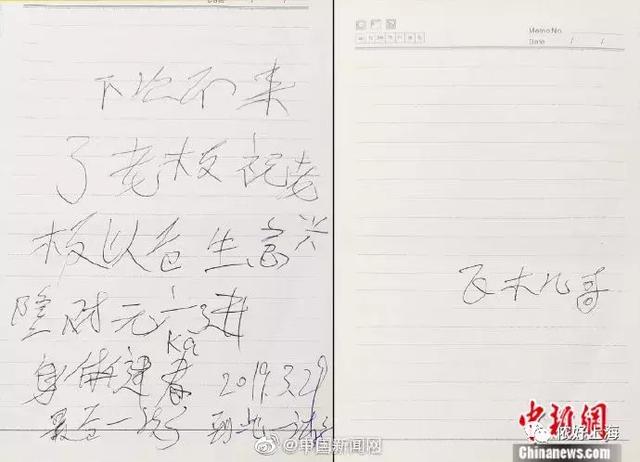 下次不来
了老板祝老
板以后生意兴
隆财元广进
ka
身体健
2019.3.29
最后一次 到此一游
Memo No.
Date / /
木几哥
@中国新闻网
中新网
侬好上海
Chinanews.com